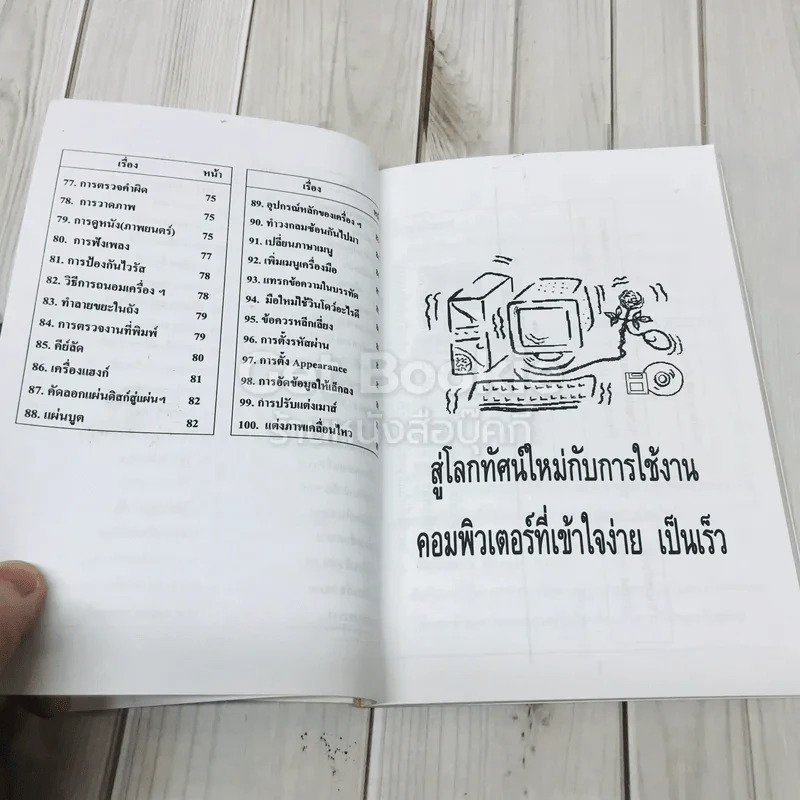 เรื่อง หน้า
77. การตรวจคำผิด 75
78. การวาดภาพ 75
79. การดูหนัง(ภาพยนตร์) 75
80. การฟังเพลง 77
81. การป้องกันไวรัส 78
82. วิธีการถนอมเครื่อง ฯ 78
83. ทำลายขยะในถัง 79
84. การตรวจงานที่พิมพ์ 79
85. คีย์ลัด 80
86. เครื่องแฮงก์ 81
87. คัดลอกแผ่นดิสก์สู่แผ่นฯ 82
88. แผ่นบูต 82
เรื่อง
89. อุปกรณ์หลักของเครื่อง ฯ
90. ทำวงกลมซ้อนกันไปมา
91. เปลี่ยนภาษาเมนู
92. เพิ่มเมนูเครื่องมือ
93. แทรกข้อความในบรรทัด
94. มือใหม่ใช้วินโดว์อะไรดี
95. ข้อควรหลีกเลี่ยง
96. การตั้งรหัสผ่าน
97. การตั้ง Appearance
98. การอัดข้อมูลให้เล็กลง
99. การปรับแต่งเมาส์
100. แต่งภาพเคลื่อนไหว
Get Book
ร้านหนังสือบุ๊คก
สู่โลกทัศน์ใหม่กับการใช้งาน
คอมพิวเตอร์ที่เข้าใจง่าย เป็นเร็ว